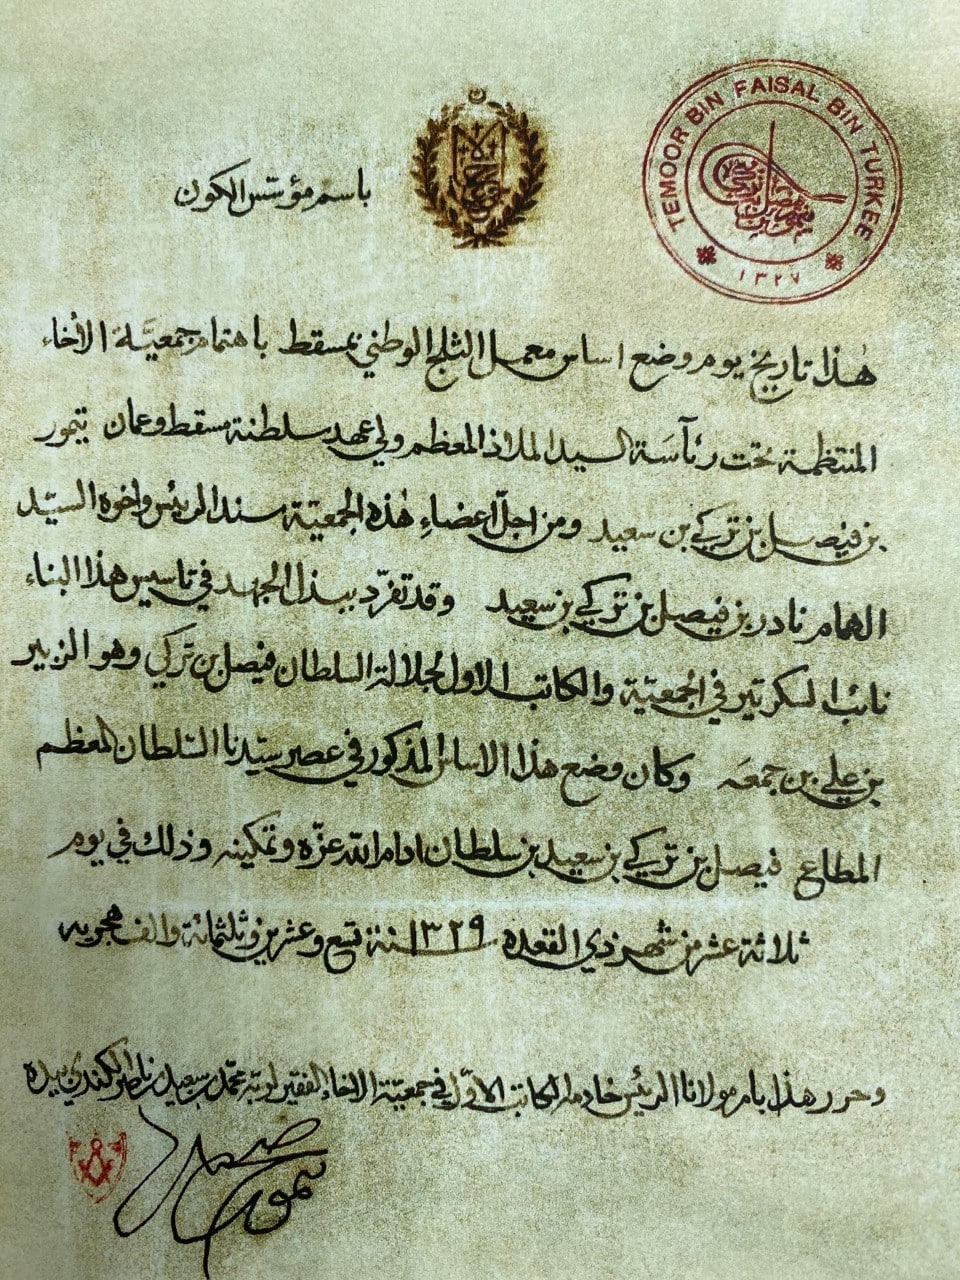 باسم مؤسّس الكون
TEMOOR BIN FAISAL BIN TURKEE
١٣٢٧
هٰذا تاريخ يوم وضع اساس معمل الثلج الوطني بمسقط باهتمام جمعيّة الأخاء
المنتظمة تحت رئآسَة السيد الملاذ المعظم ولي عهد سلطنة مسقط وعمان تيمور
بن فيصل بن تركي بن سعيد ومن اجلّ اعضاءِ هٰذه الجمعيّة سند الرئيس واخوه السيّد
الهمام نادر بن فيصل بن تركي بن سعيد وقد تفرّد ببذل الجهد في تاسيس هذا البناء
نائب السكرتير في الجمعيّة والكاتب الاول لجلالة السلطان فيصل بن تركي وهو الزبير
بن علي بن جمعَه وكان وضع هذا الاساس المذكور في عصر سيّدنا السّلطان المعظم
المطاع فيصل بن تركي بن سعيد بن سلطان ادام الله عزّه وتمكينه وذلك في يوم
ثلاثة عشر من شهر ذي القعده ١٣٢٩ سنة تسع وعشرين وثلثمائة والف هجريه
وحرر هذا بامر مولانا الرئيس خادمه الكاتب الاوّل في جمعيّة الاخاء الفقير لربه محمّد بن سعيد بن ناصر الكندي بيده
صحيح
تيمور